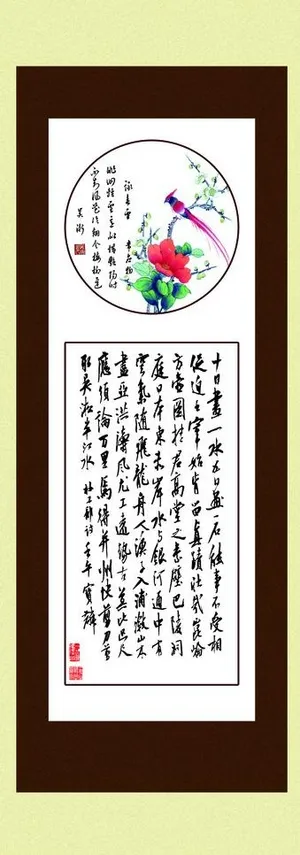 詠春雪 韋應物
徘徊輕雪意似惜艷陽時
不悟風花冷翻令梅柳遲
十日畫一水五日畫一石能事不受相
促迫王宰始肯留真蹟壯哉崑崙
方壺圖挂君高堂之素壁巴陵洞
庭日本東赤岸水與銀河通中有
雲氣隨飛龍舟人漁子入浦漵山木
盡亞洪濤風尤工遠勢古莫比咫尺
應須論萬里焉得并州快剪刀剪
取吳淞半江水 杜工部詩